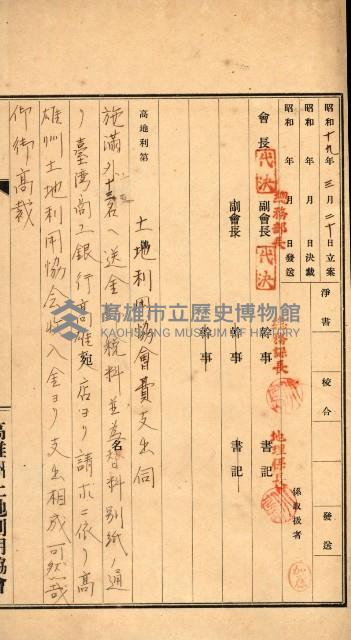 昭和十九年三月二十日立案
昭和 年 月 日決裁
昭和 年 月 日發送
淨書 校合 發送
係取扱者
總務部長 總務課長 地理係長
會長 代決 副會長 代決 幹事 書記
副會長 幹事 書記
幹事
高地利第
土地利用協會費支出伺
施滿外十三名ヘ送金
稅料並為替料別紙ノ通
リ臺灣商工銀行高雄
店ヨリ請求ニ依リ高
雄州土地利用協會
入金ヨリ支出相成可然哉
仰御高裁
高雄州土地利用協會
高雄市立歷史博物館
KAOHSIUNG MUSEUM OF HISTORY